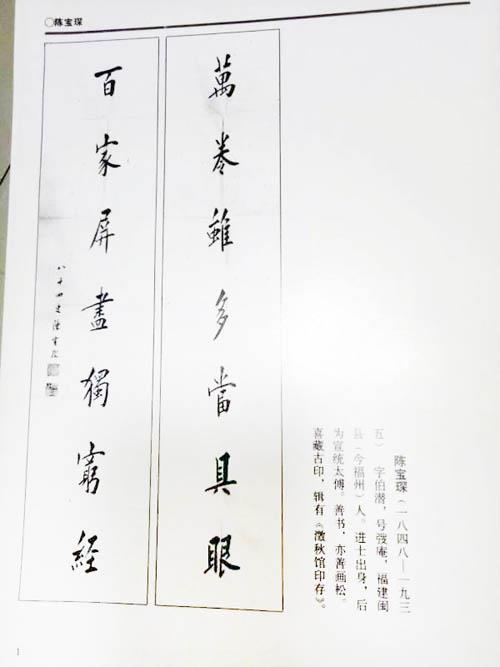 ○陈宝琛
萬卷雖多當具眼
百家屏盡獨窮經
八十四叟陳寶琛
陈宝琛(一八四八—一九三
五) 字伯潜,号弢庵,福建闽
县(今福州)人。进士出身,后
为宣统太傅。善书,亦善画松。
喜藏古印,辑有《澂秋馆印存》。
1